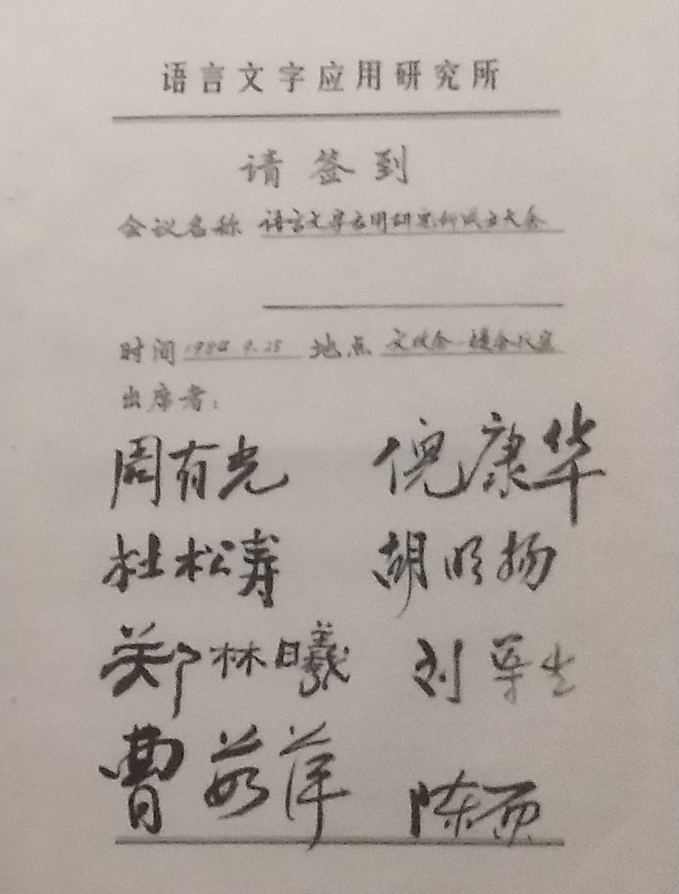 语言文字应用研究所
请签到
会议名称 语言文字应用研究所成立大会
时间 1984.9.25 地点 文改会一楼会议室
出席者：
周有光 倪康华
杜松寿 胡明扬
郑林曦 刘
曹 陈